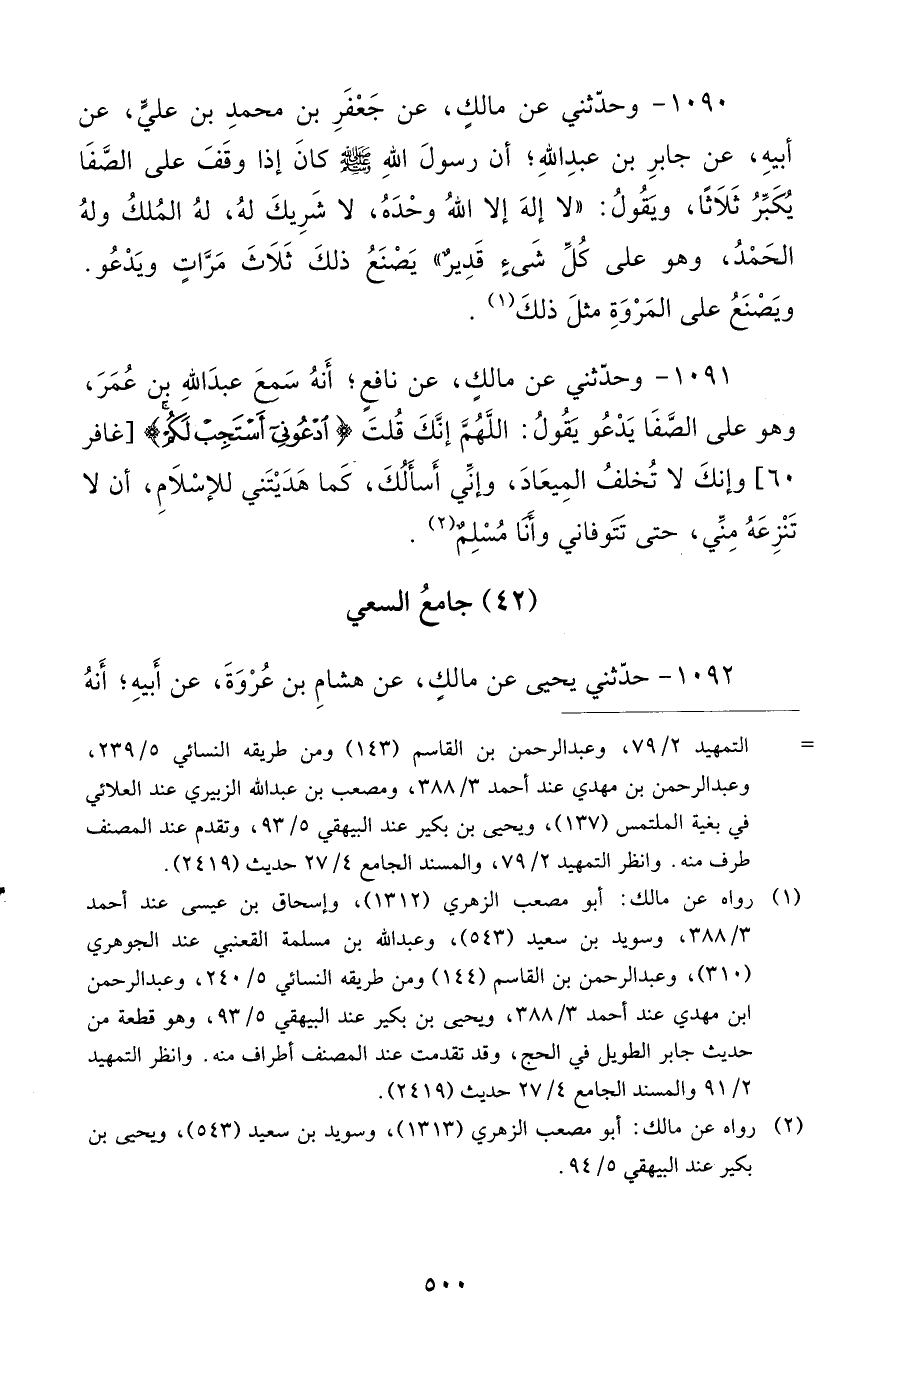 ١٠٩٠- وحدّثني عن مالكٍ، عن جَعْفَرِ بن محمدِ بن عليٍّ، عن
أبيهِ، عن جابرِ بن عبدِاللهِ؛ أن رسولَ اللهِ ﷺ كانَ إذا وقَفَ على الصَّفَا
يُكَبِّرُ ثَلَاثًا، ويَقُولُ: «لا إلهَ إلا اللهُ وحْدَهُ، لا شَرِيكَ لهُ، لهُ المُلكُ ولهُ
الحَمْدُ، وهو على كُلِّ شَيءٍ قَدِيرٌ» يَصْنَعُ ذلكَ ثَلَاثَ مَرَّاتٍ ويَدْعُو.
ويَصْنَعُ على المَرْوَةِ مثلَ ذلكَ(١).
١٠٩١- وحدّثني عن مالكٍ، عن نافعٍ؛ أَنهُ سَمعَ عبدَاللهِ بنِ عُمَرَ،
وهو على الصَّفَا يَدْعُو يَقُولُ: اللَّهُمَّ إنَّكَ قُلتَ ﴿ٱدْعُونِىٓ أَسْتَجِبْ لَكُمْ﴾ [غافر
٦٠] وإنكَ لا تُخلفُ المِيعَادَ، وإنِّي أَسأَلُكَ، كَما هَدَيْتَني للإسْلَامِ، أن لا
تَنْزِعَهُ مِنِّي، حتى تَتَوفاني وأَنَا مُسْلِمٌ(٢).
(٤٢) جامعُ السعي
١٠٩٢- حدّثني يحيى عن مالكٍ، عن هشامِ بن عُرْوَةَ، عن أَبيهِ؛ أَنهُ
= التمهيد ٢/ ٧٩، وعبدالرحمن بن القاسم (١٤٣) ومن طريقه النسائي ٥/ ٢٣٩،
وعبدالرحمن بن مهدي عند أحمد ٣/ ٣٨٨، ومصعب بن عبدالله الزبيري عند العلائي
في بغية الملتمس (١٣٧)، ويحيى بن بكير عند البيهقي ٥/ ٩٣، وتقدم عند المصنف
طرف منه. وانظر التمهيد ٢/ ٧٩، والمسند الجامع ٤/ ٢٧ حديث (٢٤١٩).
(١) رواه عن مالك: أبو مصعب الزهري (١٣١٢)، وإسحاق بن عيسى عند أحمد
٣/ ٣٨٨، وسويد بن سعيد (٥٤٣)، وعبدالله بن مسلمة القعنبي عند الجوهري
(٣١٠)، وعبدالرحمن بن القاسم (١٤٤) ومن طريقه النسائي ٥/ ٢٤٠، وعبدالرحمن
ابن مهدي عند أحمد ٣/ ٣٨٨، ويحيى بن بكير عند البيهقي ٥/ ٩٣، وهو قطعة من
حديث جابر الطويل في الحج، وقد تقدمت عند المصنف أطراف منه. وانظر التمهيد
٢/ ٩١ والمسند الجامع ٤/ ٢٧ حديث (٢٤١٩).
(٢) رواه عن مالك: أبو مصعب الزهري (١٣١٣)، وسويد بن سعيد (٥٤٣)، ويحيى بن
بكير عند البيهقي ٥/ ٩٤.
٥٠٠